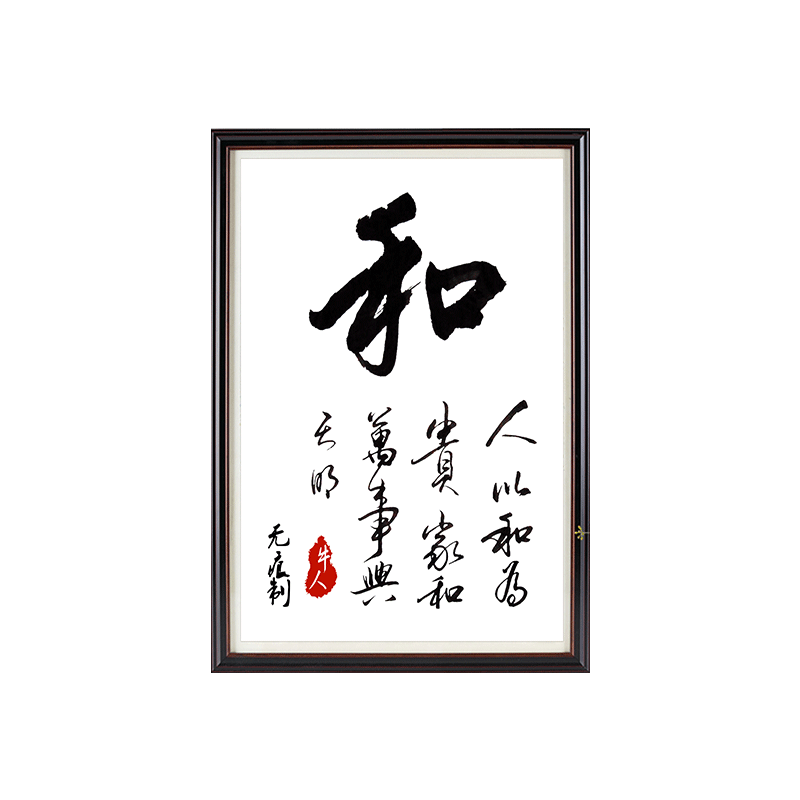 和
人以和為
貴家和
萬事興
天明
牛人
无痕制